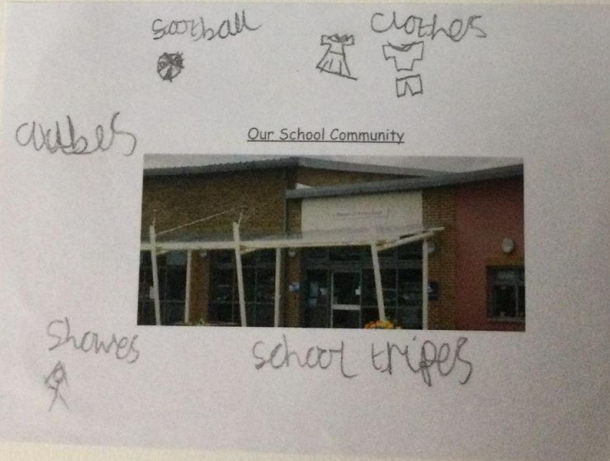 football
Clothes
Our School Community
Showes
School tripes